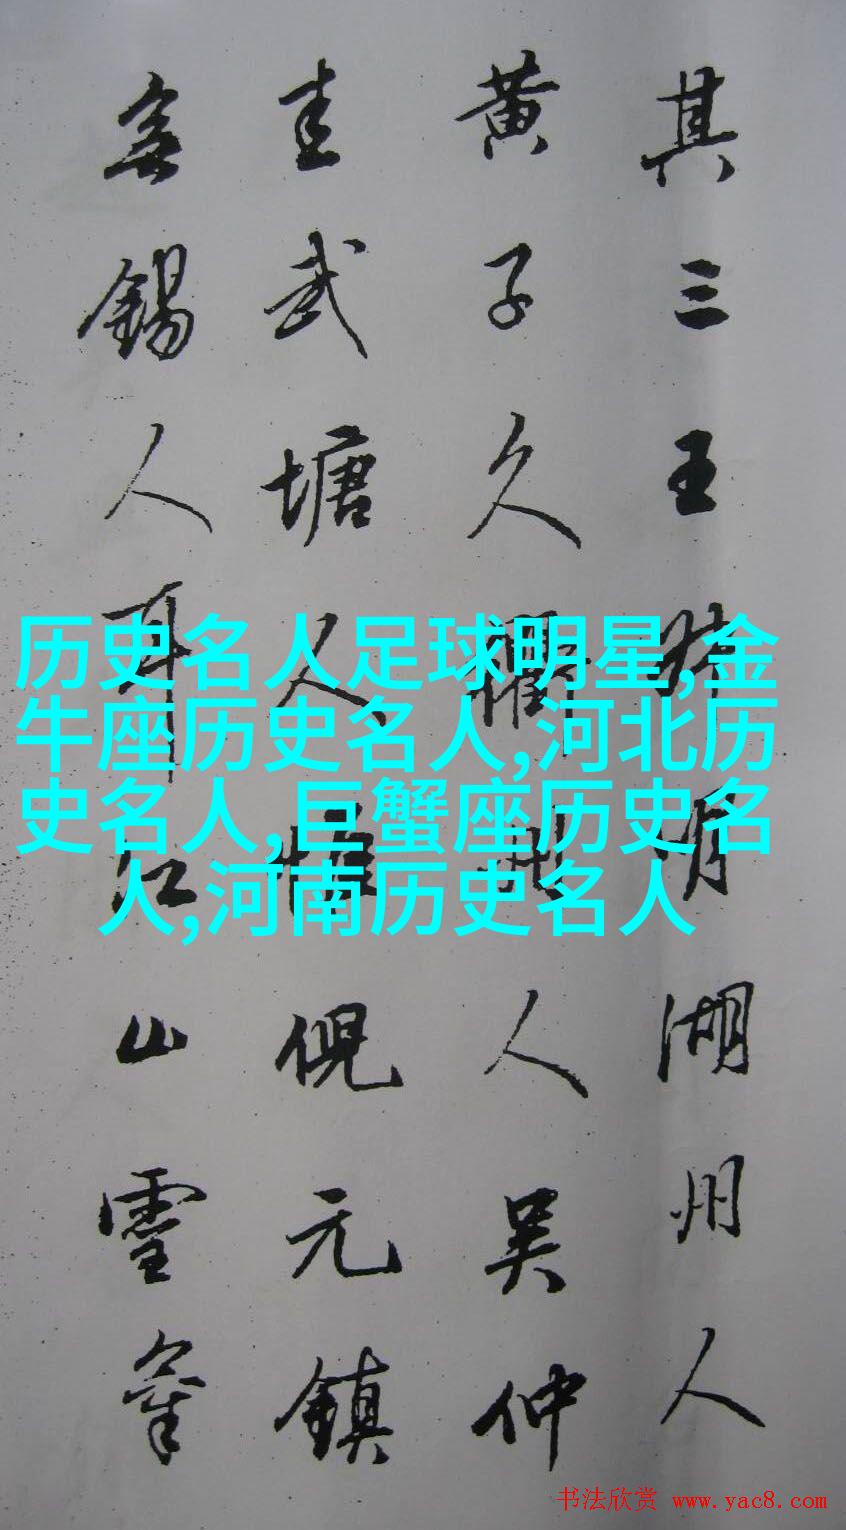 其三王叔明湖州人
黄子久衢州人吴仲
圭武塘人惟倪元鎮
無錫人耳江山靈氣
历史名人足球明星,金
牛座历史名人,河北历
史名人,巨蟹座历史名
人,河南历史名人
书法欣赏 www.yac8.com